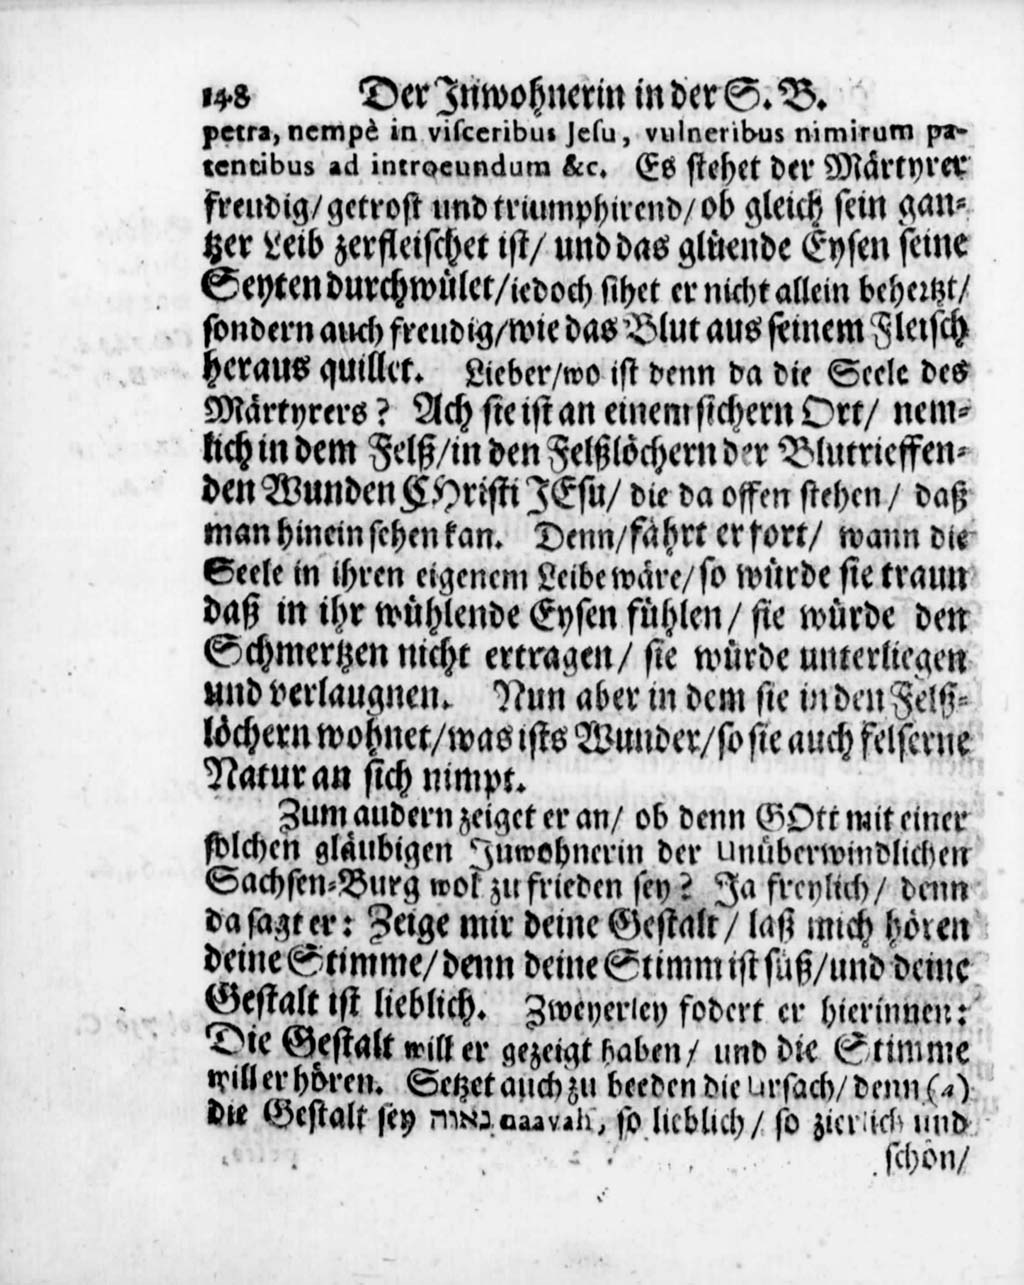 148 Der Inwohnerin in der S. B.
petra, nempè in visceribus Jesu, vulneribus nimirum pa-
tentibus ad introeundum &c. Es stehet der Märtyrer
freudig/ getrost und triumphirend/ ob gleich sein gan-
tzer Leib zerfleischet ist/ und das glüende Eysen seine
Seyten durchwület/ iedoch sihet er nicht allein behertzt/
sondern auch freudig/ wie das Blut aus seinem Fleisch
heraus quillet. Lieber/ wo ist denn da die Seele des
Märtyrers? Ach sie ist an einem sichern Ort/ nem-
lich in dem Felß/ in den Felßlöchern der Blutrieffen-
den Wunden CHristi JEsu/ die da offen stehen/ daß
man hinein sehen kan. Denn/ fährt er fort/ wann die
Seele in ihren eigenem Leibe wäre/ so würde sie traun
daß in ihr wühlende Eysen fühlen/ sie würde den
Schmertzen nicht ertragen/ sie würde unterliegen
und verlaugnen. Nun aber in dem sie in den Felß-
löchern wohnet/ was ists Wunder/ so sie auch felserne
Natur an sich nimpt.
Zum andern zeiget er an/ ob denn GOtt mit einer
solchen gläubigen Inwohnerin der Unüberwindlichen
Sachsen-Burg wol zu frieden sey? Ja freylich/ denn
da sagt er: Zeige mir deine Gestalt/ laß mich hören
deine Stimme/ denn deine Stimm ist süß/ und deine
Gestalt ist lieblich. Zweyerley fodert er hierinnen:
Die Gestalt will er gezeigt haben/ und die Stimme
will er hören. Setzet auch zu beeden die Ursach/ denn (a)
die Gestalt sey נאוה naavah, so lieblich/ so zierlich und
schön/